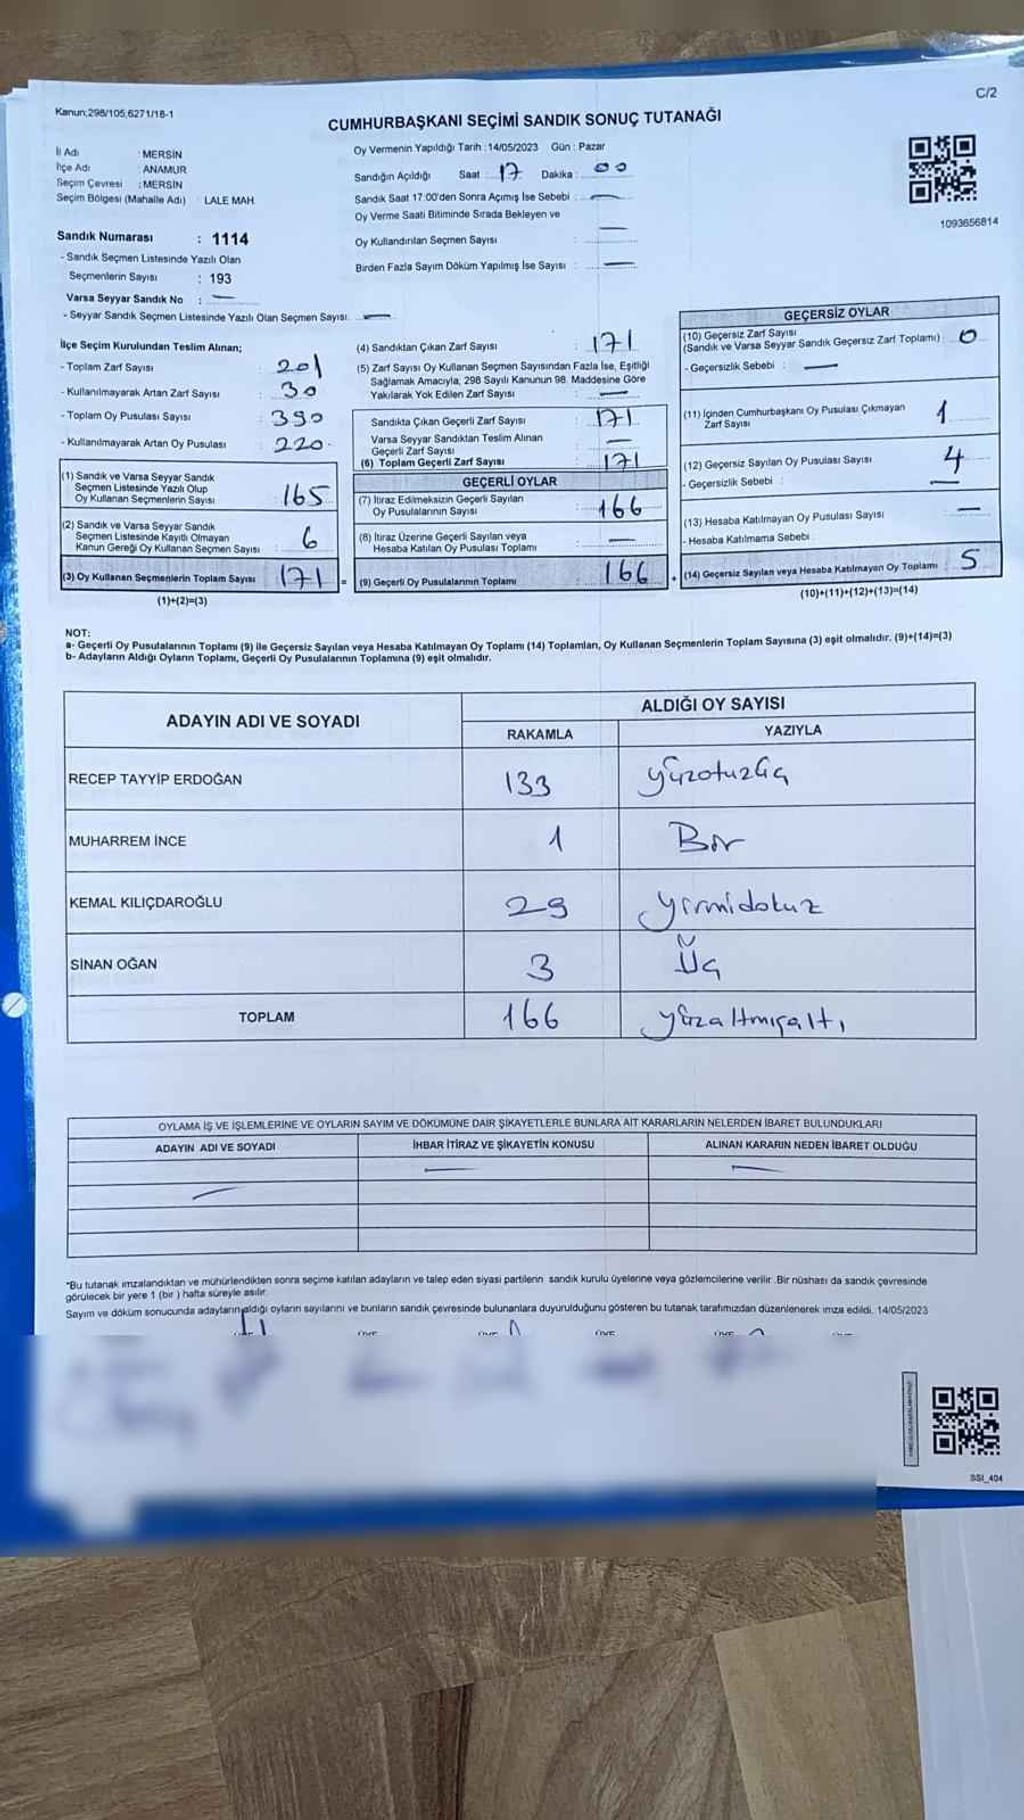 C/2
Kanun;298/105,6271/18-1
CUMHURBAŞKANI SEÇİMİ SANDIK SONUÇ TUTANAĞI
İl Adı : MERSİN
İlçe Adı : ANAMUR
Seçim Çevresi : MERSİN
Seçim Bölgesi (Mahalle Adı) : LALE MAH.
Sandık Numarası : 1114
- Sandık Seçmen Listesinde Yazılı Olan
Seçmenlerin Sayısı : 193
Varsa Seyyar Sandık No : —
- Seyyar Sandık Seçmen Listesinde Yazılı Olan Seçmen Sayısı : —
Oy Vermenin Yapıldığı Tarih : 14/05/2023 Gün : Pazar
Sandığın Açıldığı Saat : 17 Dakika : 00
Sandık Saat 17:00'den Sonra Açımış İse Sebebi : —
Oy Verme Saati Bitiminde Sırada Bekleyen ve
Oy Kullandırılan Seçmen Sayısı : —
Birden Fazla Sayım Döküm Yapılmış İse Sayısı : —
1093656814
İlçe Seçim Kurulundan Teslim Alınan;
- Toplam Zarf Sayısı : 201
- Kullanılmayarak Artan Zarf Sayısı : 30
- Toplam Oy Pusulası Sayısı : 390
- Kullanılmayarak Artan Oy Pusulası : 220
(1) Sandık ve Varsa Seyyar Sandık
Seçmen Listesinde Yazılı Olup
Oy Kullanan Seçmenlerin Sayısı : 165
(2) Sandık ve Varsa Seyyar Sandık
Seçmen Listesinde Kayıtlı Olmayan
Kanun Gereği Oy Kullanan Seçmen Sayısı : 6
(3) Oy Kullanan Seçmenlerin Toplam Sayısı : 171 =
(1)+(2)=(3)
(4) Sandıktan Çıkan Zarf Sayısı : 171
(5) Zarf Sayısı Oy Kullanan Seçmen Sayısından Fazla İse, Eşitliği
Sağlamak Amacıyla, 298 Sayılı Kanunun 98. Maddesine Göre
Yakılarak Yok Edilen Zarf Sayısı : —
Sandıkta Çıkan Geçerli Zarf Sayısı : 171
Varsa Seyyar Sandıktan Teslim Alınan
Geçerli Zarf Sayısı : —
(6) Toplam Geçerli Zarf Sayısı : 171
GEÇERLİ OYLAR
(7) İtiraz Edilmeksizin Geçerli Sayılan
Oy Pusulalarının Sayısı : 166
(8) İtiraz Üzerine Geçerli Sayılan veya
Hesaba Katılan Oy Pusulası Toplamı : —
(9) Geçerli Oy Pusulalarının Toplamı : 166 +
GEÇERSİZ OYLAR
(10) Geçersiz Zarf Sayısı
(Sandık ve Varsa Seyyar Sandık Geçersiz Zarf Toplamı) : 0
- Geçersizlik Sebebi : —
(11) İçinden Cumhurbaşkanı Oy Pusulası Çıkmayan
Zarf Sayısı : 1
(12) Geçersiz Sayılan Oy Pusulası Sayısı : 4
- Geçersizlik Sebebi : —
(13) Hesaba Katılmayan Oy Pusulası Sayısı : —
- Hesaba Katılmama Sebebi :
(14) Geçersiz Sayılan veya Hesaba Katılmayan Oy Toplamı : 5
(10)+(11)+(12)+(13)=(14)
NOT:
a- Geçerli Oy Pusulalarının Toplamı (9) ile Geçersiz Sayılan veya Hesaba Katılmayan Oy Toplamı (14) Toplamları, Oy Kullanan Seçmenlerin Toplam Sayısına (3) eşit olmalıdır. (9)+(14)=(3)
b- Adayların Aldığı Oyların Toplamı, Geçerli Oy Pusulalarının Toplamına (9) eşit olmalıdır.
ADAYIN ADI VE SOYADI
ALDIĞI OY SAYISI
RAKAMLA YAZIYLA
RECEP TAYYİP ERDOĞAN 133 yüzotuzüç
MUHARREM İNCE 1 Bir
KEMAL KILIÇDAROĞLU 29 yirmidokuz
SİNAN OĞAN 3 Üç
TOPLAM 166 yüzaltmışaltı
OYLAMA İŞ VE İŞLEMLERİNE VE OYLARIN SAYIM VE DÖKÜMÜNE DAİR ŞİKAYETLERLE BUNLARA AİT KARARLARIN NELERDEN İBARET BULUNDUKLARI
ADAYIN ADI VE SOYADI İHBAR İTİRAZ VE ŞİKAYETİN KONUSU ALINAN KARARIN NEDEN İBARET OLDUĞU
— — —
*Bu tutanak imzalandıktan ve mühürlendikten sonra seçime katılan adayların ve talep eden siyasi partilerin sandık kurulu üyelerine veya gözlemcilerine verilir. Bir nüshası da sandık çevresinde
görülecek bir yere 1 (bir ) hafta süreyle asılır.
Sayım ve döküm sonucunda adayların aldığı oyların sayılarını ve bunların sandık çevresinde bulunanlara duyurulduğunu gösteren bu tutanak tarafımızdan düzenlenerek imza edildi. 14/05/2023
SSI_404